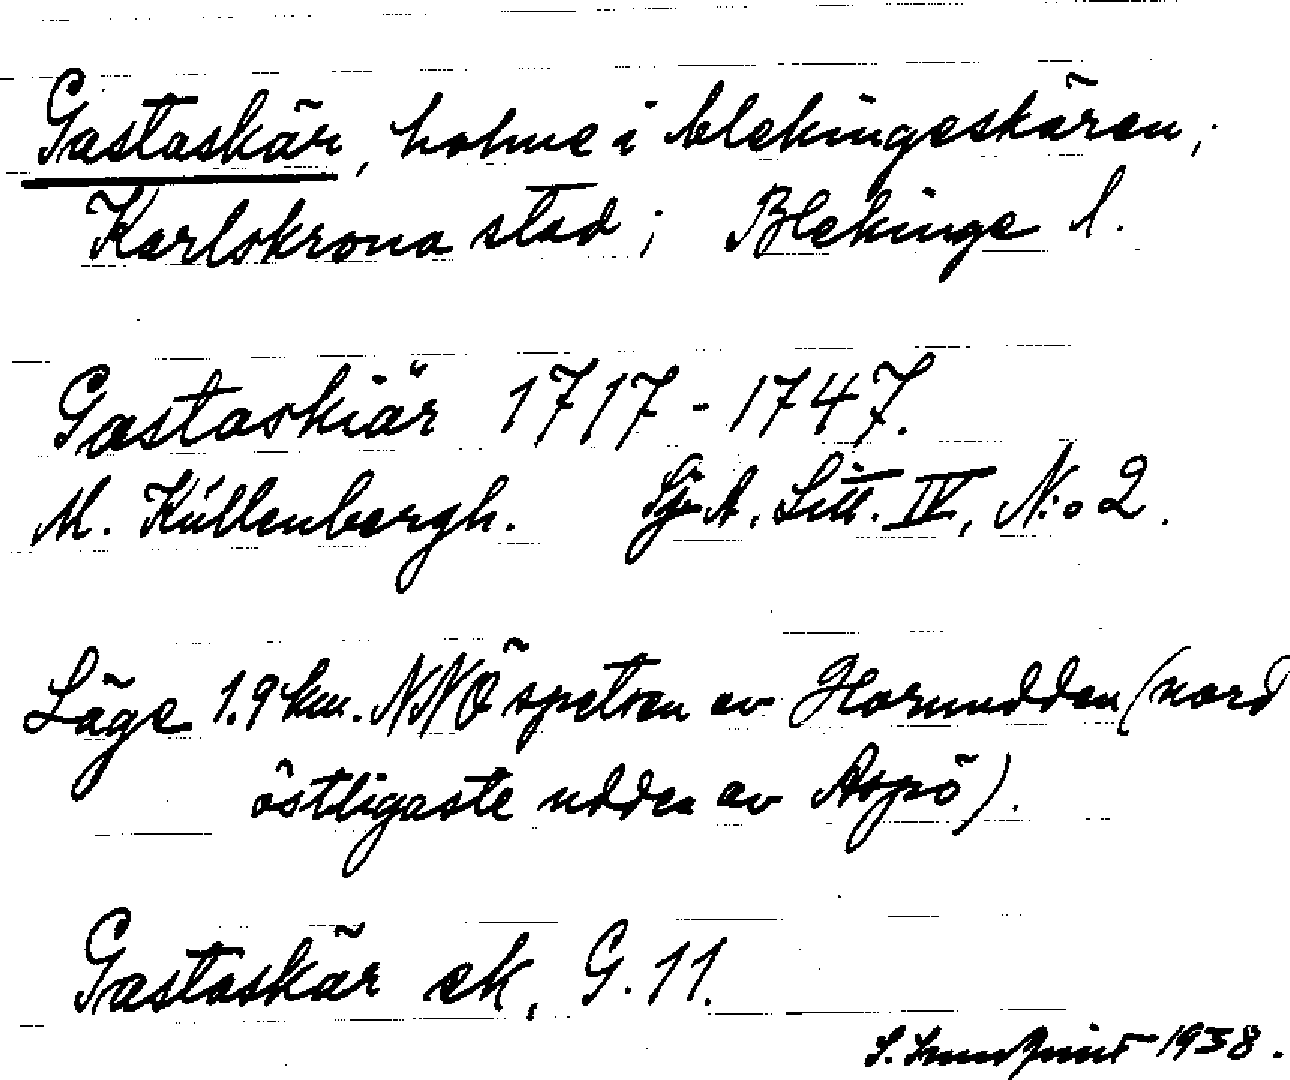 Gastaskär, holme i blekingeskären;
Karlskrona stad; Blekinge l.
Gastaskiär 1717 - 1747.
M. Küllenbergh. Sjk. A. Litt. IV, N:o 2.
Läge 1.9 km. NNÖ spetsen av Horundden (nord
östligaste udden av Aspö).
Gastaskär ek, G. 11.
S. 1938.